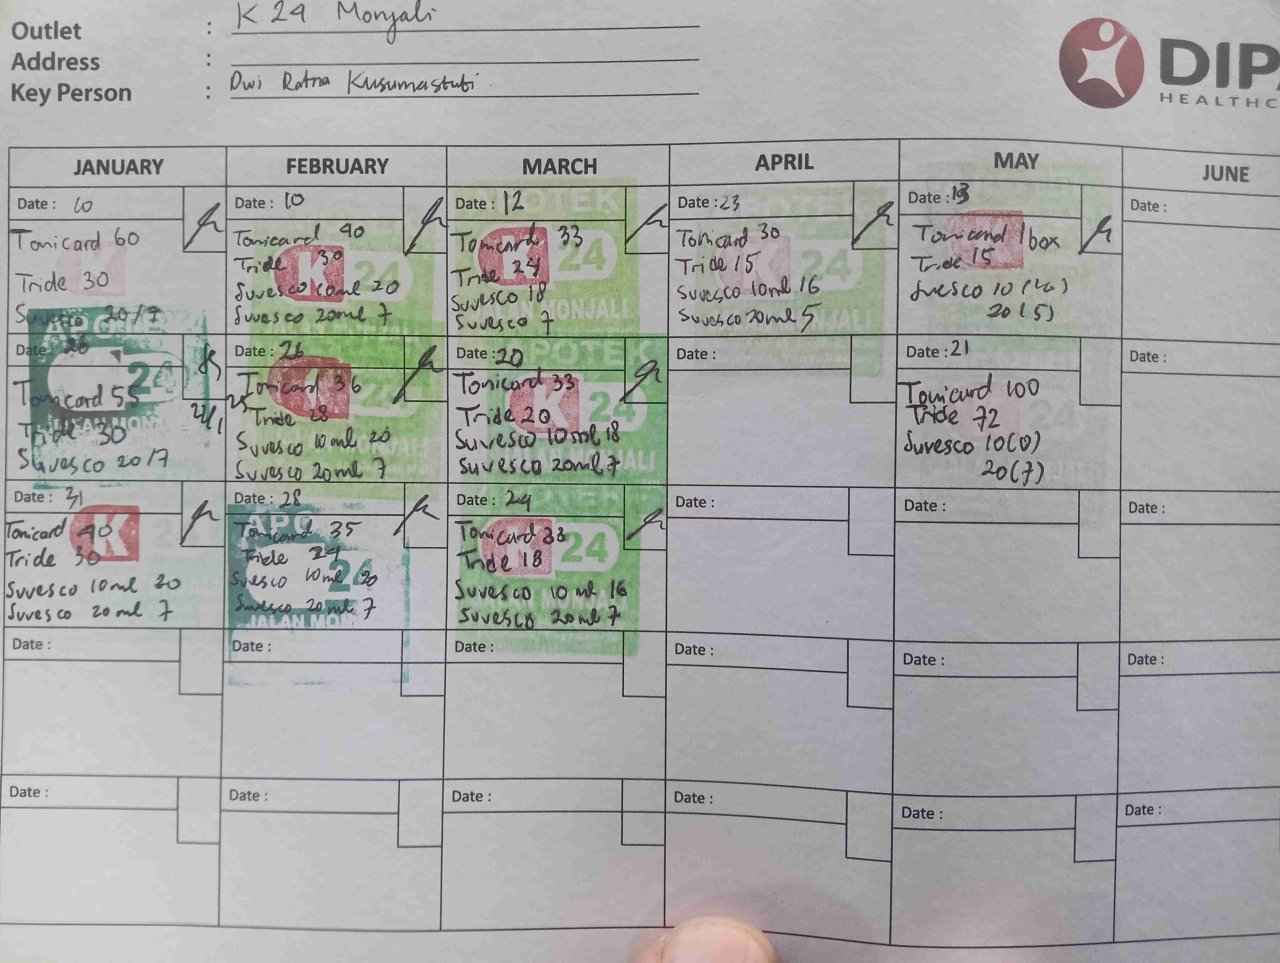 Outlet : K 24 Monjali
Address :
Key Person : Dwi Ratna Kusumastuti
DIPA
HEALTHC
JANUARY
Date : 10
Tonicard 60
Tride 30
Suvesco 20/7
Date : 26
Tonicard 55
Tride 30
Suvesco 20/7
Date : 31
Tonicard 40
Tride 30
Suvesco 10 ml 20
Suvesco 20 ml 7
Date :
Date :
FEBRUARY
Date : 10
Tonicard 40
Tride 30
Suvesco 10ml 20
Suvesco 20ml 7
Date : 26
Tonicard 36
Tride 28
Suvesco 10ml 20
Suvesco 20ml 7
Date : 28
Tonicard 35
Tride 24
Suvesco 10ml 20
Suvesco 20ml 7
Date :
Date :
MARCH
Date : 12
Tonicard 33
Tride 24
Suvesco 18
Suvesco 7
Date : 20
Tonicard 33
Tride 20
Suvesco 10ml 18
Suvesco 20ml 7
Date : 24
Tonicard 33
Tride 18
Suvesco 10 ml 16
Suvesco 20ml 7
Date :
Date :
APRIL
Date : 23
Tonicard 30
Tride 15
Suvesco 10ml 16
Suvesco 20ml 5
Date :
Date :
Date :
Date :
MAY
Date : 13
Tonicard 1 box
Tride 15
Suvesco 10
20 (5)
Date : 21
Tonicard 100
Tride 72
Suvesco 10(0)
20(7)
Date :
Date :
Date :
JUNE
Date :
Date :
Date :
Date :
Date :